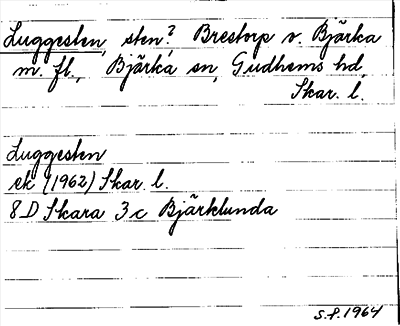 Luggesten, sten? Brestorp v. Bjärka
m. fl., Bjärka sn, Gudhems hd,
Skar. l.
Luggesten
ek (1962) Skar. l.
8D Skara 3c Bjärklunda
S.P. 1964